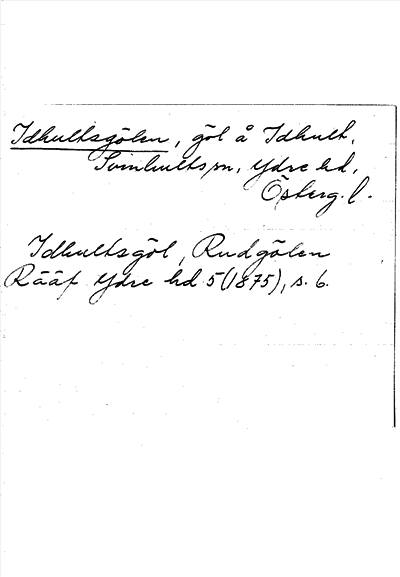 Idhultsgölen, göl å Idhult,
Svinhults sn, Ydre hd,
Östерg. l.
Idhultsgöl, Rudgölen
Rääf Ydre hd 5 (1875), s. 6.